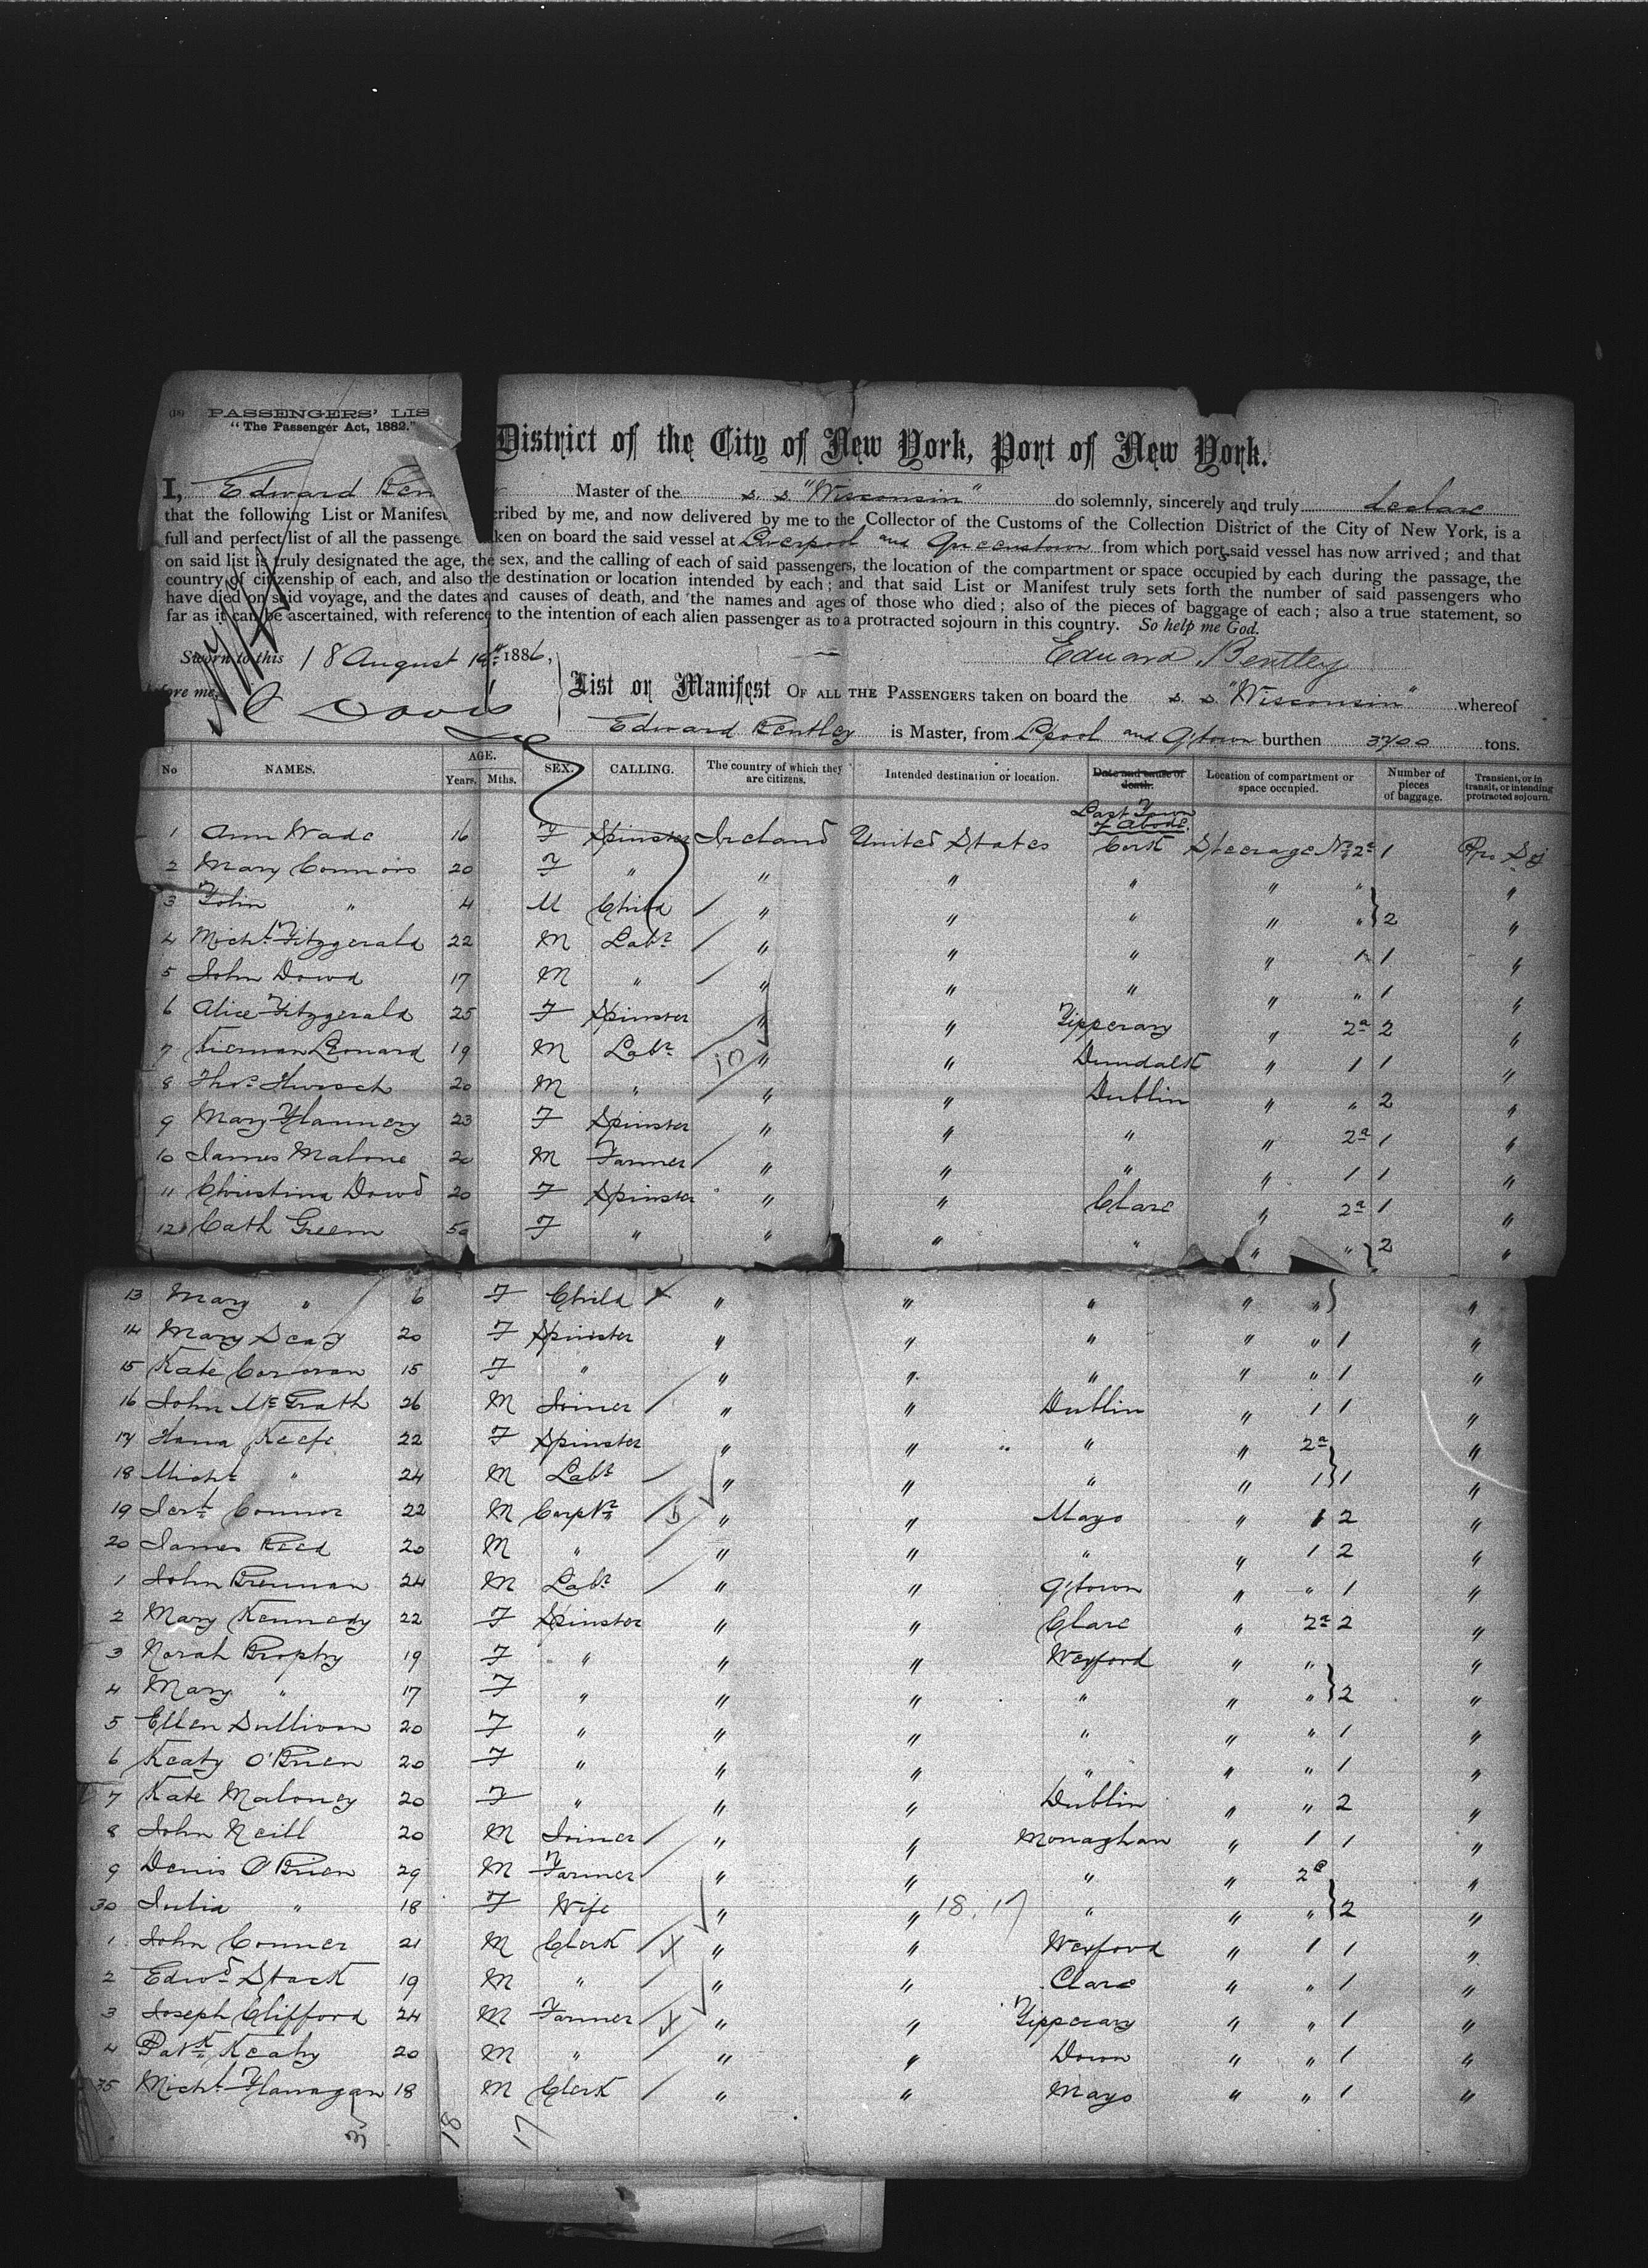 PASSENGERS' LIS
"The Passenger Act, 1882."
District of the City of New York, Port of New York.
I, Edward Ben Master of the s. s. "Wisconsin" do solemnly, sincerely and truly declare
that the following List or Manifest cribed by me, and now delivered by me to the Collector of the Customs of the Collection District of the City of New York, is a
full and perfect list of all the passenge aken on board the said vessel at Liverpool and Queenstown from which port said vessel has now arrived; and that
on said list is truly designated the age, the sex, and the calling of each of said passengers, the location of the compartment or space occupied by each during the passage, the
country of citizenship of each, and also the destination or location intended by each; and that said List or Manifest truly sets forth the number of said passengers who
have died on said voyage, and the dates and causes of death, and the names and ages of those who died; also of the pieces of baggage of each; also a true statement, so
far as it can be ascertained, with reference to the intention of each alien passenger as to a protracted sojourn in this country. So help me God.
Sworn to this 18 August 1886, Edward Bentley
before me, C Davis
List or Manifest OF ALL THE PASSENGERS taken on board the s. s. "Wisconsin" whereof
Edward Bentley is Master, from Lpool and Q'town burthen 3700 tons.
No NAMES. AGE. Years. Mths. SEX. CALLING. The country of which they are citizens. Intended destination or location. Date and cause of death. Location of compartment or space occupied. Number of pieces of baggage. Transient, or in transit, or intending protracted sojourn.
Last Town of Abode.
1 Ann Wade 16 F Spinster Ireland United States Cork Steerage No 2a 1 Pro Soj
2 Mary Connors 20 F " " " " " " "
3 John " 4 M Child " " " " " 2 "
4 Michl Fitzgerald 22 M Labr " " " " 1 1 "
5 John Dowd 17 M " " " " " " 1 "
6 Alice Fitzgerald 25 F Spinster " " Tipperary " 2a 2 "
7 Kiernan Leonard 19 M Labr 10 " " Dundalk " 1 1 "
8 Thos 20 M " " " Dublin " " 2 "
9 Mary Flannery 23 F Spinster " " " " 2a 1 "
10 James Malone 20 M Farmer " " " " 1 1 "
11 Christina Dowd 20 F Spinster " " Clare " 2a 1 "
12 Cath Green 50 F " " " " " " 2 "
13 Mary " 6 F Child " " " " " "
14 Mary 20 F Spinster " " " " " 1 "
15 Kate Corcoran 15 F " " " " " " 1 "
16 John McGrath 26 M Joiner " " Dublin " 1 1 "
17 Hana Keefe 22 F Spinster " " " " 2a "
18 Michl " 24 M Labr " " " " 1 1 "
19 Jerh Connor 22 M Carpntr " " Mayo " 1 2 "
20 James Reed 20 M " " " " " 1 2 "
1 John Brennan 24 M Labr " " Q'town " " 1 "
2 Mary Kennedy 22 F Spinster " " Clare " 2a 2 "
3 Norah Brophy 19 F " " " Wexford " " "
4 Mary " 17 F " " " " " " 2 "
5 Ellen Sullivan 20 F " " " " " " 1 "
6 Keaty O'Brien 20 F " " " " " " 1 "
7 Kate Maloney 20 F " " " Dublin " " 2 "
8 John Neill 20 M Joiner " " Monaghan " 1 1 "
9 Denis O'Brien 29 M Farmer " " " " 2c "
30 Julia " 18 F Wife " " 18, 17 " " " 2 "
1 John Conner 21 M Clerk " " Wexford " 1 1 "
2 Edwd Stack 19 M " " " Clare " " 1 "
3 Joseph Clifford 24 M Farmer " " Tipperary " " 1 "
4 Patk Keahy 20 M " " " Down " " 1 "
35 Michl Flanagan 18 M Clerk " " Mayo " " 1 "
35 18 17